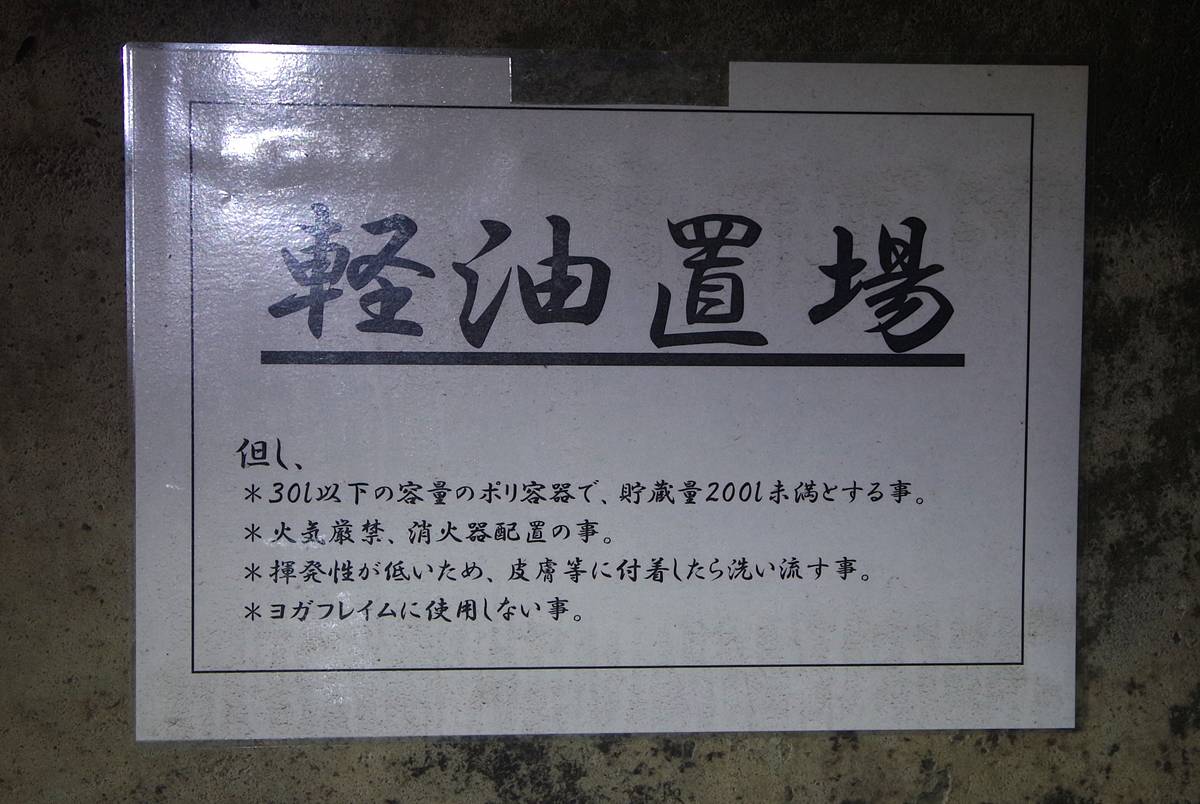 軽油置場
但し、
＊30l以下の容量のポリ容器で、貯蔵量200l未満とする事。
＊火気厳禁、消火器配置の事。
＊揮発性が低いため、皮膚等に付着したら洗い流す事。
＊ヨガフレイムに使用しない事。